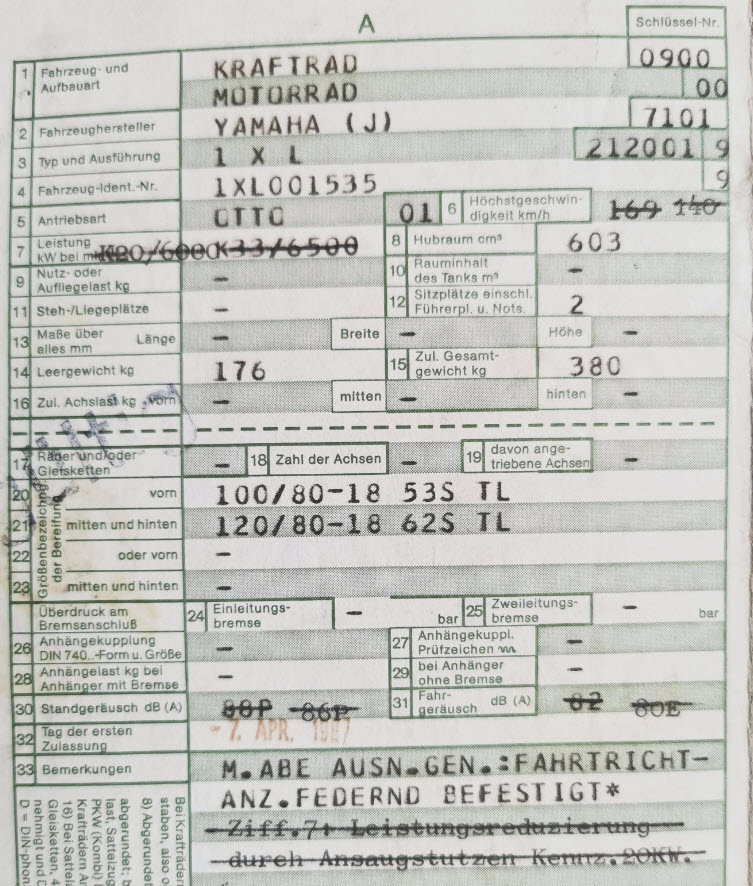 A
Schlüssel-Nr.
1 Fahrzeug- und Aufbauart KRAFTRAD 0900
MOTORRAD 00
2 Fahrzeughersteller YAMAHA (J) 7101
3 Typ und Ausführung 1 X L 212001 9
4 Fahrzeug-Ident.-Nr. 1XL001535 9
5 Antriebsart OTTO 01 6 Höchstgeschwin-digkeit km/h 169 140
7 Leistung kW bei K20/6000 K33/6500 8 Hubraum cm³ 603
9 Nutz- oder Aufliegelast kg – 10 Rauminhalt des Tanks m³ –
11 Steh-/Liegeplätze – 12 Sitzplätze einschl. Führerpl. u. Nots. 2
13 Maße über alles mm Länge – Breite – Höhe –
14 Leergewicht kg 176 15 Zul. Gesamt-gewicht kg 380
16 Zul. Achslast kg vorn – mitten – hinten –
17 Räder und/oder Gleisketten – 18 Zahl der Achsen – 19 davon ange-triebene Achsen –
Größenbezeichnung der Bereifung
20 vorn 100/80-18 53S TL
21 mitten und hinten 120/80-18 62S TL
22 oder vorn –
23 mitten und hinten –
Überdruck am Bremsanschluß 24 Einleitungs-bremse – bar 25 Zweileitungs-bremse – bar
26 Anhängekupplung DIN 740..-Form u. Größe – 27 Anhängekuppl. Prüfzeichen –
28 Anhängelast kg bei Anhänger mit Bremse – 29 bei Anhänger ohne Bremse –
30 Standgeräusch dB (A) 88P 86P 31 Fahr-geräusch dB (A) 82 80E
32 Tag der ersten Zulassung - 7. APR. 1987
33 Bemerkungen M.ABE AUSN.GEN.:FAHRTRICHT-
ANZ.FEDERND BEFESTIGT*
Ziff.7: Leistungsreduzierung
durch Ansaugstutzen Kennz.20KW.
Bei Krafträdern
staben, also o
8) Abgerundet
abgerundet; b
last, Sattelzug
PKW (Kombi)
Krafträdern An
18) Bei Sattel
Gleisketten, 4
nehmigt und D
D = DIN-phon.